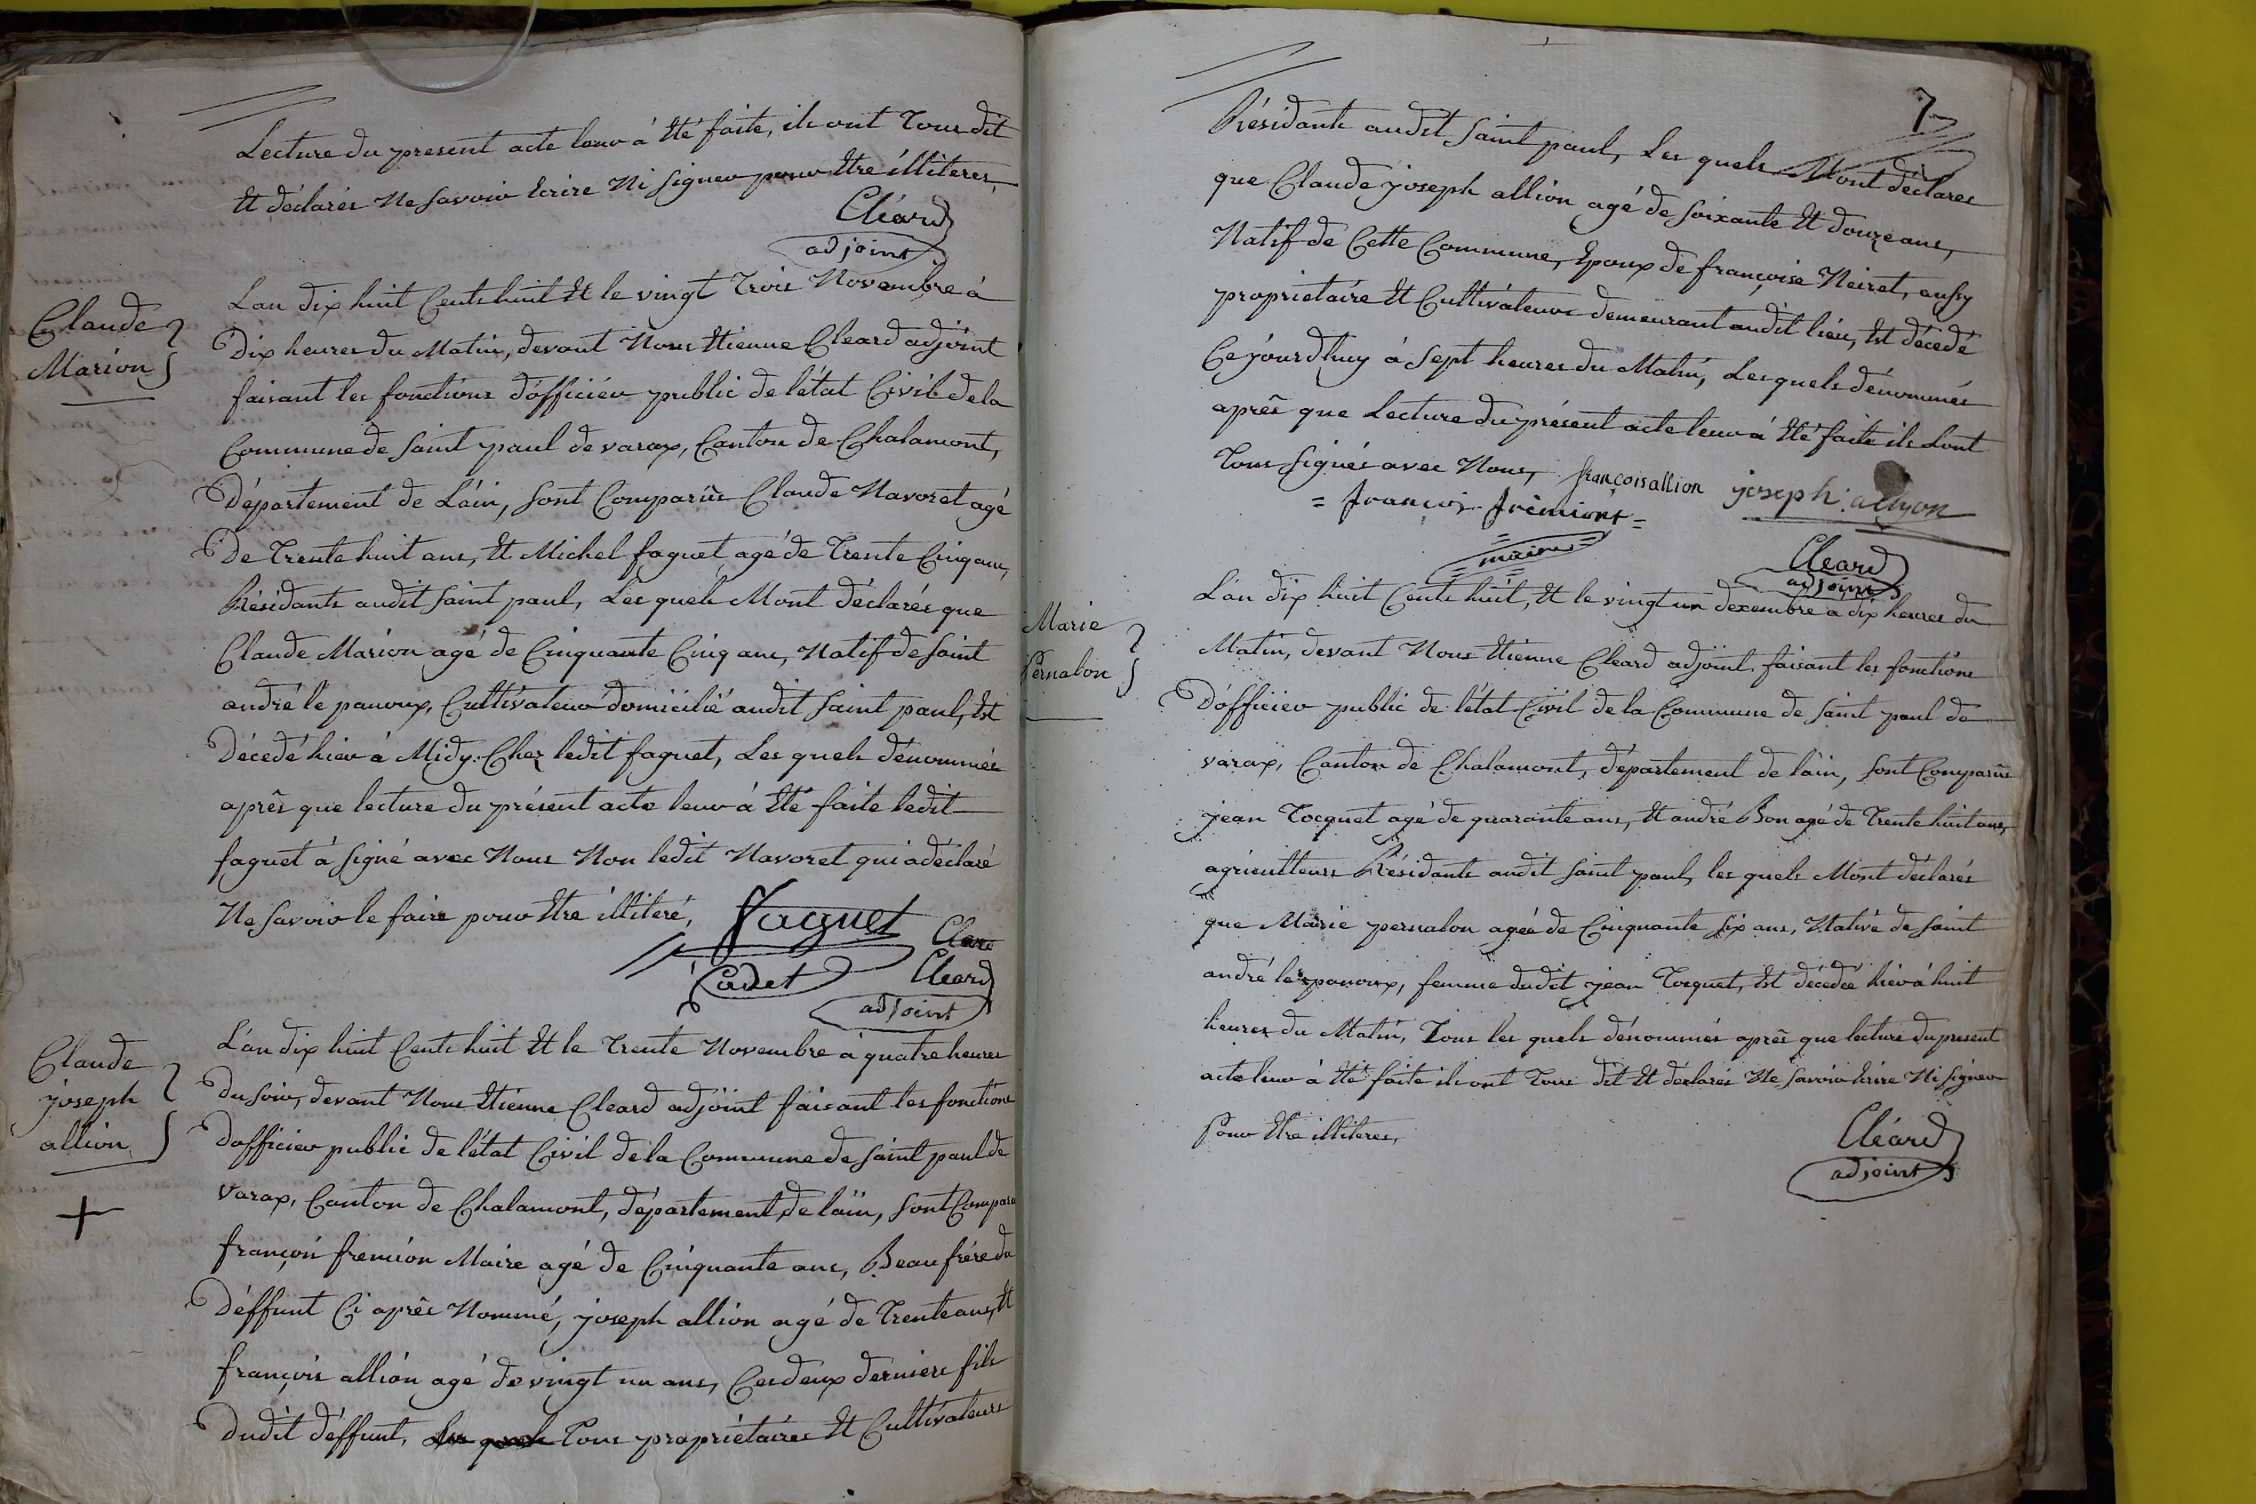 Lecture du present acte leur à Eté faite, ils ont Tous dit
Et déclarés Ne savoir Ecrire Ni signer pour Etre illiteres,
Cléard
adjoint
Claude
Marion
Lan dix huit Cents huit Et le vingt Trois Novembre à
Dix heures du Matin, devant Nous Etienne Cleard adjoint
faisant les fonctions d'officier public de l'état Civil de la
Commune de Saint paul de varax, Canton de Chalamont,
Département de L'ain, sont Comparûs Claude Navoret agé
De Trente huit ans, Et Michel faguet agé de Trente Cinq ans,
Résidants audit Saint paul, Les quels M'ont déclarés que
Claude Marion agé de Cinquante Cinq ans, Natif de Saint
andré le panoux, Cultivateur domicilié audit Saint paul, Est
Décedé hier à Midy Chez ledit faguet, Les quels dénommés
après que lecture du présent acte leur à Eté faite ledit
faguet à signé avec Nous Non ledit Navoret qui a déclaré
Ne savoir le faire pour Etre illiteré,
Faguet
Cadet
Clear
Cleard
adjoint
Claude
joseph
allion
L'an dix huit Cents huit Et le Trente Novembre à quatre heures
Du soir, devant Nous Etienne Cleard adjoint faisant les fonctions
D'officier public de l'état Civil de la Commune de Saint paul de
Varax, Canton de Chalamont, département de lain, sont Comparu
françois fremion Maire agé de Cinquante ans, Beau frére du
Déffunt Ci après Nommé, joseph allion agé de Trente ans, Et
françois allion agé de vingt un ans, Ces deux derniers fils
Dudit déffunt, Les quels Tous propriétaires Et Cultivateurs
7
Résidants audit Saint paul, Les quels M'ont déclarés
que Claude joseph allion agé de soixante Et douze ans,
Natif de Cette Commune, Epoux de françoise Neiret, aussy
propriétaire Et Cultivateur demeurant audit lieu, Est décedé
Ce jourdhuy à Sept heures du Matin, Les quels dénommés
après que Lecture du présent acte leur à Eté faite ils L'ont
Tous signés avec Nous,
françois allion
joseph allyon
= françois frémiont =
maire
Cleard
adjoint
Marie
Pernalon
L'an dix huit Cents huit, Et le vingt un dexembre a dix heures du
Matin, devant Nous Etienne Cleard adjoint faisant les fonctions
D'officier public de l'état Civil de la Commune de Saint paul de
varax, Canton de Chalamont, département de lain, sont Comparûs
jean Tocquet agé de quarante ans, Et andré Bon agé de Trente huit ans,
agriculteurs Résidants audit Saint paul, les quels M'ont déclarés
que Marie pernalon agée de Cinquante six ans, Native de Saint
andré le panoux, femme dudit jean Tocquet, Est décedée hier à huit
heures du Matin, Tous les quels dénommés après que lecture du present
acte leur à Eté faite ils ont Tous dit Et déclarés Ne savoir Ecrire Ni signer
Pour Etre illiteres,
Cléard
adjoint